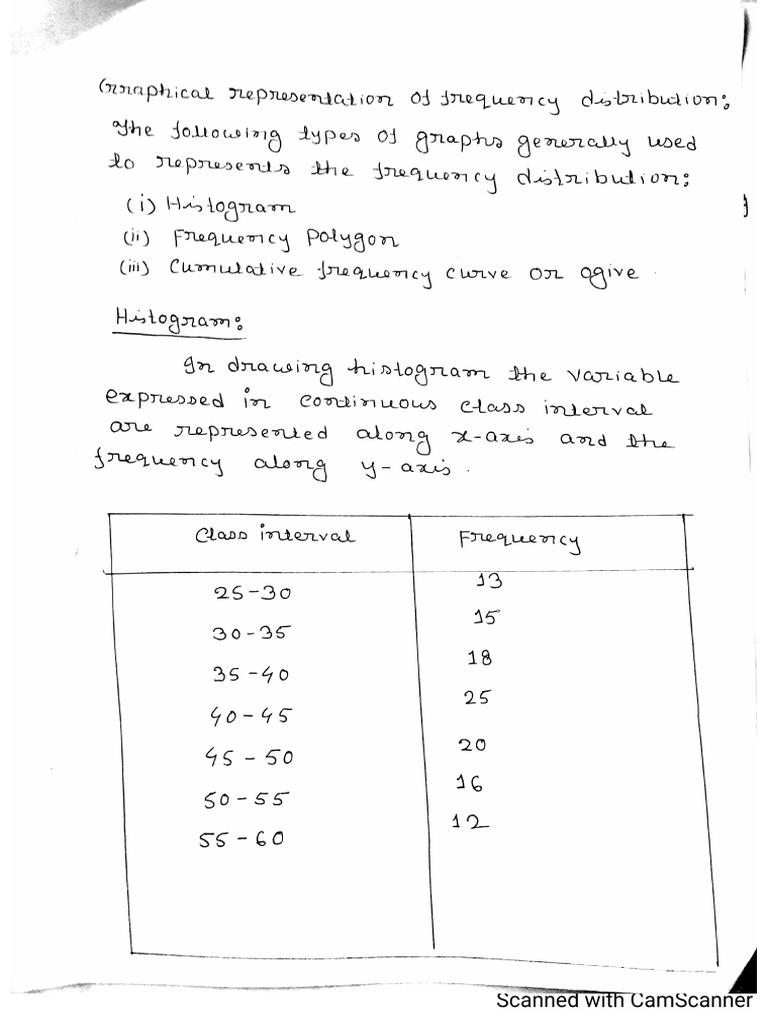 Graphical representation of frequency distribution:
The following types of graphs generally used
to represents the frequency distribution:
(i) Histogram
(ii) Frequency Polygon
(iii) Cumulative frequency curve or ogive.
Histogram:
In drawing histogram the variable
expressed in continuous class interval
are represented along x-axis and the
frequency along y-axis.
Class interval Frequency
25-30 13
30-35 15
35-40 18
40-45 25
45-50 20
50-55 16
55-60 12
Scanned with CamScanner